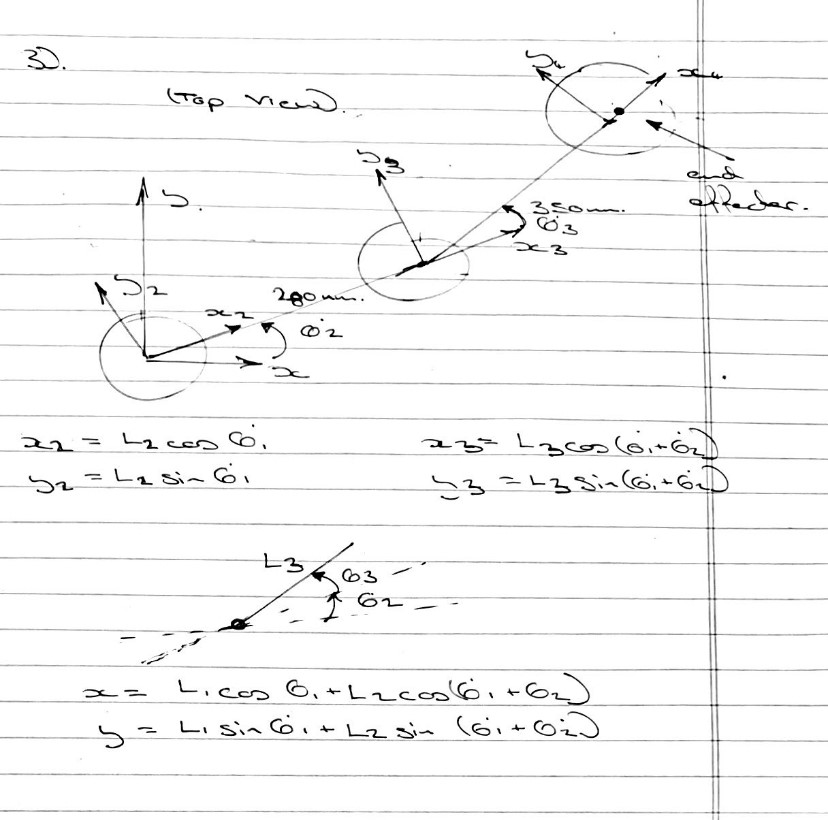 3).
(Top View).
y4
x4
y3
end
effector.
350mm.
θ3
x3
y.
y2
280mm.
x2
θ2
x
x2 = L2 cos θ1
x3 = L3 cos (θ1+θ2)
y2 = L2 sin θ1
y3 = L3 sin (θ1+θ2)
L3
θ3
θ2
x = L1 cos θ1 + L2 cos (θ1 + θ2)
y = L1 sin θ1 + L2 sin (θ1 + θ2)